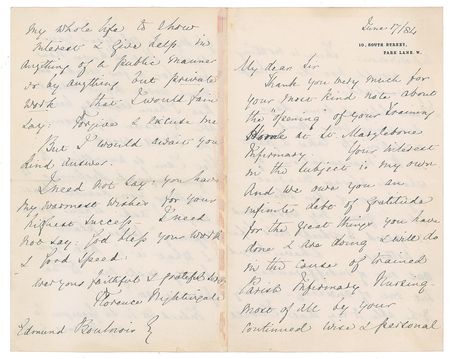 June 17/84
10, SOUTH STREET,
PARK LANE. W.
My dear Sir
Thank you very much for
your most kind note about
the "opening" of your Training
Home at St Marylebone
Infirmary. Your interest
in the subject is my own
And we owe you an
infinite debt of gratitude
for the great things you have
done & are doing & will do
in the cause of trained
Parish Infirmary Nursing
most of all by your
continued wise & personal
my whole life to show
interest & give help in
anything of a public manner
or by anything but private
work that I would fain
say: Forgive & excuse me
But I would await your
kind answer.
I need not say: you have
my warmest wishes for your
highest success. I need
not say: God bless your work
& Good speed
ever your faithful & grateful
Florence Nightingale
Edmund Boulnois